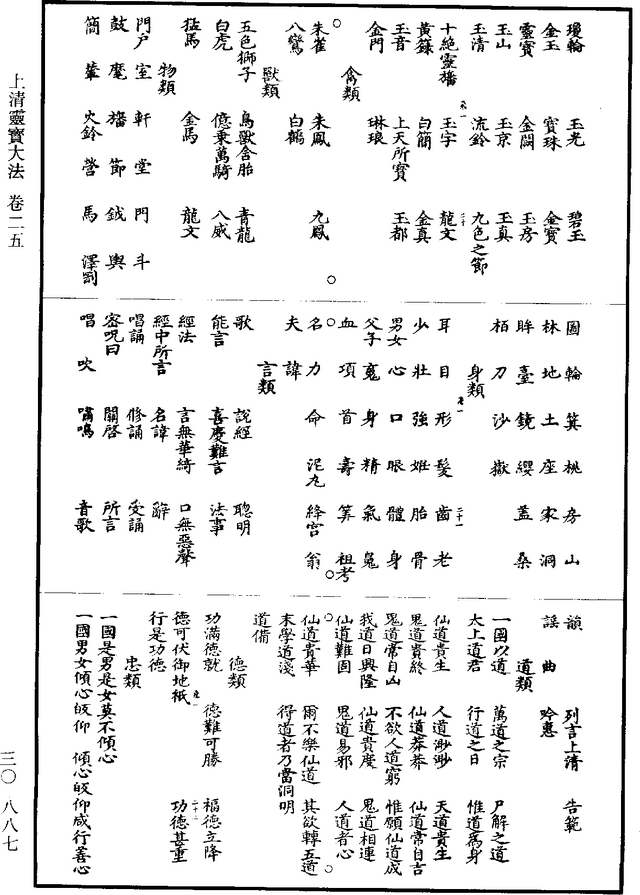 上清靈寶大法　卷二五
三〇・八八七
瓊輪　玉光　碧玉
金玉　寶珠　金寶
靈寶　金闕　玉房
玉山　玉京　玉真
玉清　流鈴　九色之節
十絕靈旛　玉字　龍文
黃籙　白簡　金真
玉音　上天所寶　玉都
金門　琳琅
禽類
朱雀　朱鳳　九鳳
八鸞　白鶴
獸類
五色獅子　鳥獸含胎　青龍
白虎　億乘萬騎　八威
猛馬　金馬　龍文
物類
門户　室　軒　堂　門　斗
鼓　麾　旛　節　鉞　輿
簡　輦　火鈴　營　馬　澤劚
圓　輪　箕　桃　房　山
林　地　土　座　家　洞
眸　臺　鏡　纓　蓋　桑
栢　刀　沙　嶽
身類
耳　目　形　髮　齒　老
少　壯　強　姙　胎　骨
男女　心　口　眼　體　身
父子　寃　身　精　氣　魂
血　項　首　壽　筭　祖考
名　力　命　泥丸　絳宮　翁
夫　諱
言類
歌　說經　聰明
能言　喜慶難言　法事
經法　言無華綺　口無惡聲
經中所言　名諱　辭
唱誦　修誦　受誦
密呪曰　關啓　所言
唱　吹　嘯鳴　音歌
韻　列言上清　告範
謡　曲　吟惠
道類
一國以道　萬道之宗　尸解之道
太上道君　行道之日　惟道爲身
仙道貴生　人道渺渺　天道貴生
鬼道貴終　仙道莽莽　仙道常自吉
鬼道常自凶　不欲人道窮　惟願仙道成
我道日興隆　仙道貴度　鬼道相連
仙道難固　鬼道易邪　人道者心
仙道貴華　爾不樂仙道　其欲轉五道
末學道淺　得道者乃當洞明
道備
德類
功滿德就　德難可勝　福德立降
德可伏御地祇　功德甚重
行是功德
忠類
一國是男是女莫不傾心
一國男女傾心皈仰　傾心皈仰咸行善心